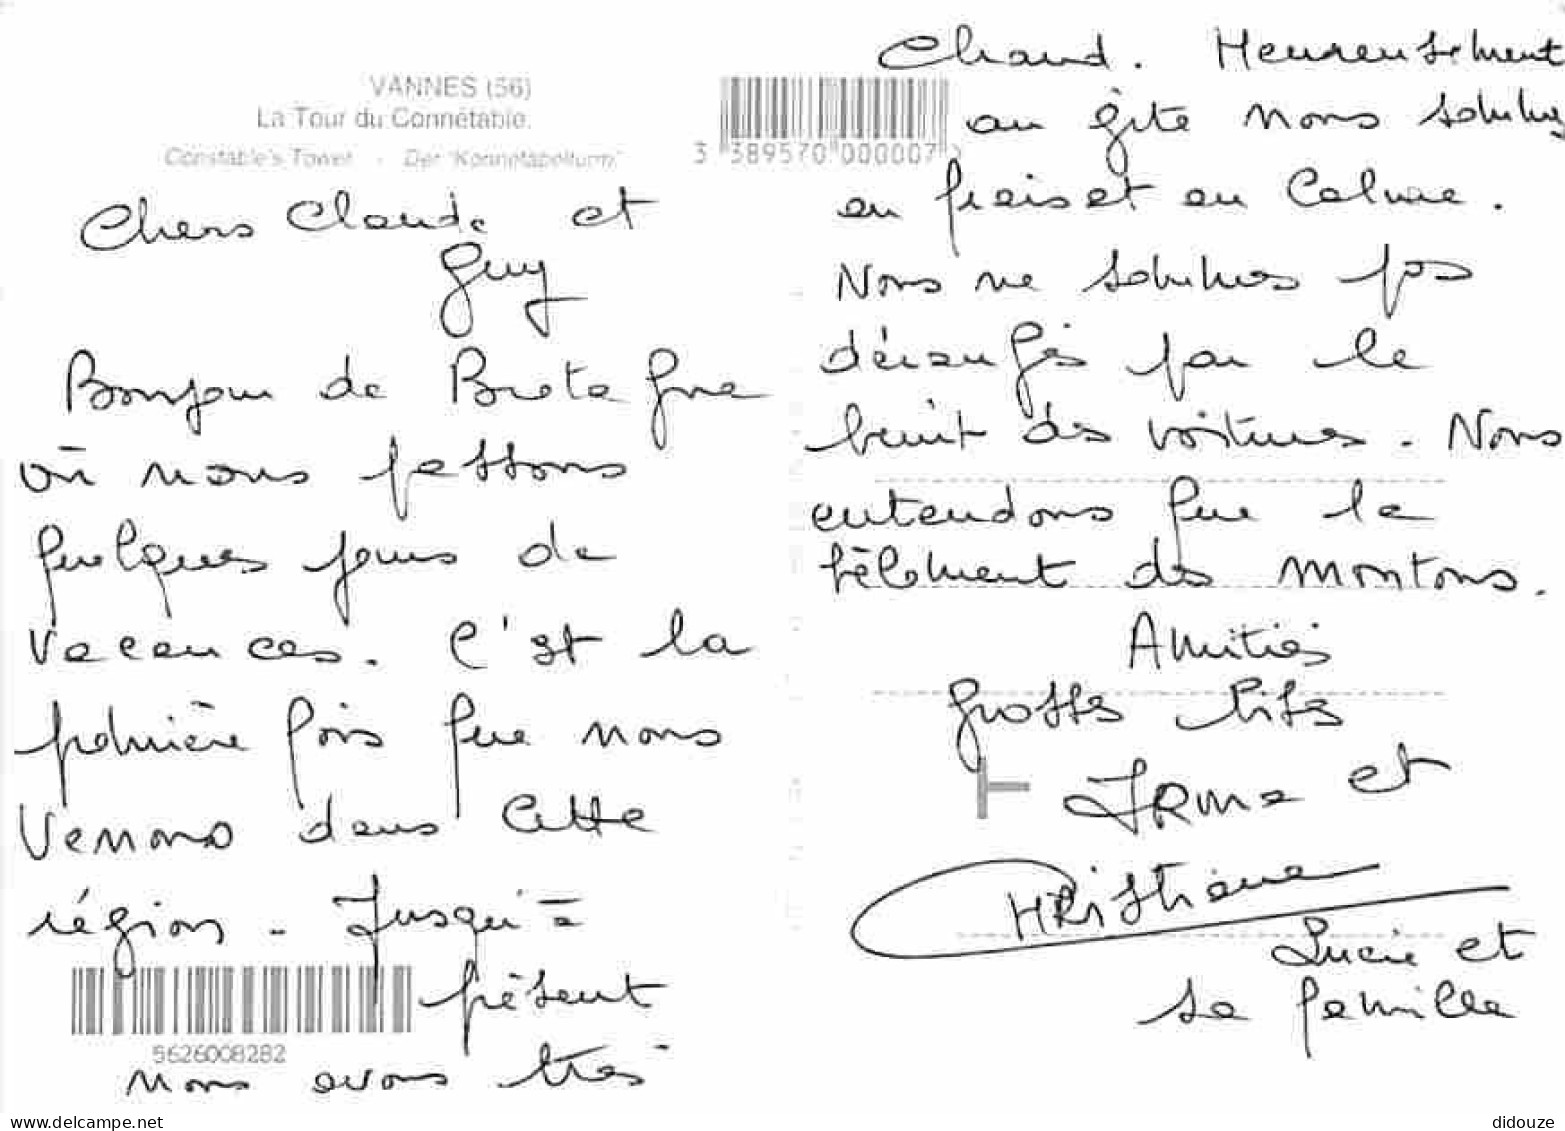 VANNES (56)
La Tour du Connétable.
Constable's Tower - Der "Konnetabelturm"
3 389570 000007
Chers Claude et
Guy
Bonjour de Bretagne
où nous passons
quelques jours de
vacances. C'est la
première fois que nous
venons dans cette
région - Jusqu'à
présent
5626008282
nous avons très
Chaud. Heureusement
au gîte nous sommes
au frais et au Calme.
Nous ne sommes pas
dérangés par le
bruit des voitures. Nous
entendons que le
bêlement des moutons.
Amitiés
Grosses bises
IRma et
CHRistiane
Lucie et
sa famille
www.delcampe.net
didouze